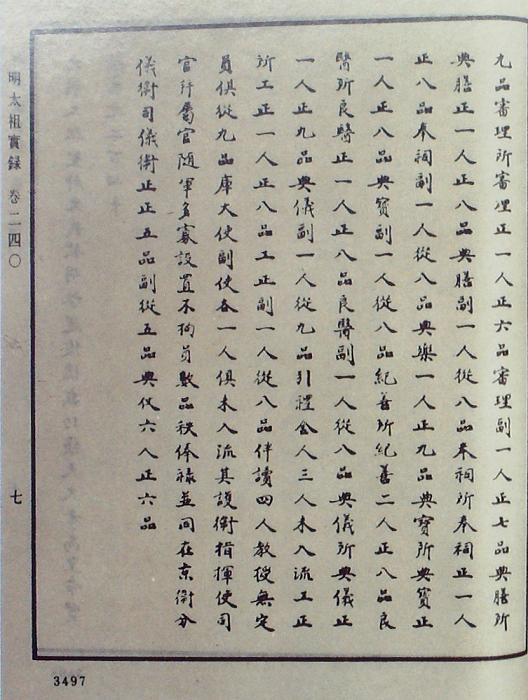 九品審理所審理正一人正六品審理副一人正七品典膳所
典膳正一人正八品典膳副一人從八品奉祠所奉祠正一人
正八品奉祠副一人從八品典樂一人正九品典寶所典寶正
一人正八品典寶副一人從八品紀善所紀善二人正八品良
醫所良醫正一人正八品良醫副一人從八品典儀所典儀正
一人正九品典儀副一人從九品引禮舍人三人未入流工正
所工正一人正八品工正副一人從八品伴讀四人教授無定
員俱從九品庫大使副使各一人俱未入流其護衛指揮使司
官行屬官隨軍多寡設置不拘員數品秩俸祿並同在京衛分
儀衛司儀衛正正五品副從五品典仗六人正六品
明太祖實録 卷二四〇
七
3497